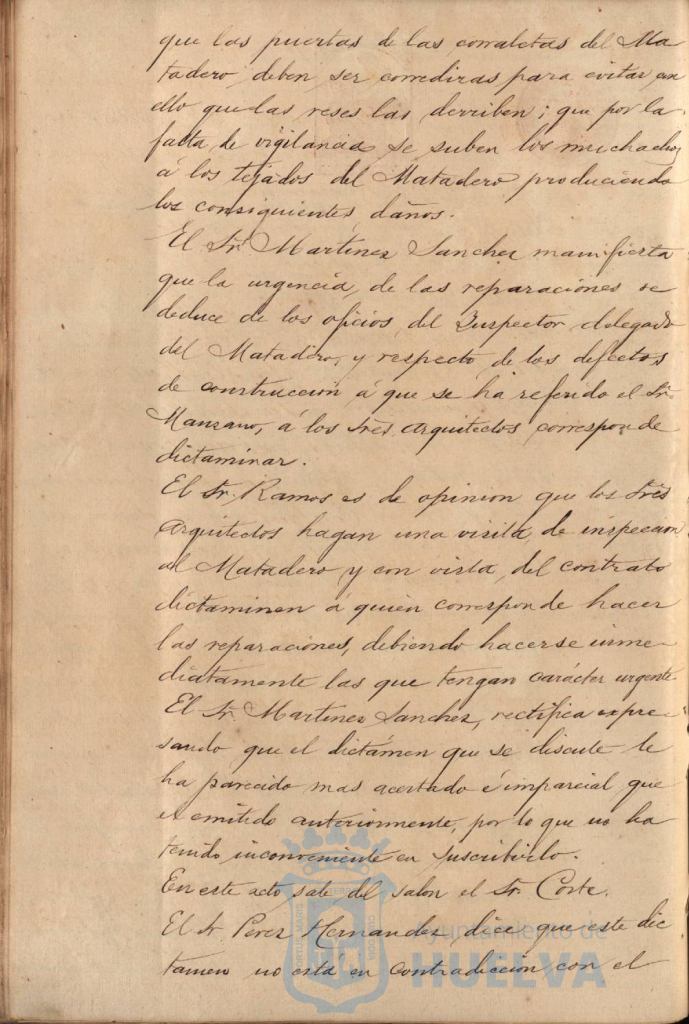 que las puertas de las corraletas del Ma-
tadero, deben ser corredizas para evitar con
ello que las reses las derriben; que por la
falta de vigilancia se suben los muchachos
á los tejados del Matadero produciendo
los consiguientes daños.
El Sr. Martinez Sanchez manifiesta
que la urgencia, de las reparaciones se
deduce de los oficios, del Inspector, delegado
del Matadero, y respecto, de los defectos
de construccion á que se ha referido el Sr.
Manzano, á los tres arquitectos corresponde
dictaminar.
El Sr. Ramos es de opinion que los tres
arquitectos hagan una visita, de inspeccion
al Matadero y con vista, del contrato
dictaminen á quien corresponde hacer
las reparaciones, debiendo hacerse inme-
diatamente las que tengan carácter urgente.
El Sr. Martinez Sanchez, rectifica expre-
sando que el dictámen que se discute le
ha parecido mas acertado é imparcial que
el emitido anteriormente, por lo que no ha
tenido inconveniente en suscribirlo.
En este acto, sale del salon el Sr. Corte.
El Sr. Perez Hernandez, dice que este dic
tamen no está en contradiccion con el
Ayuntamiento de
HUELVA